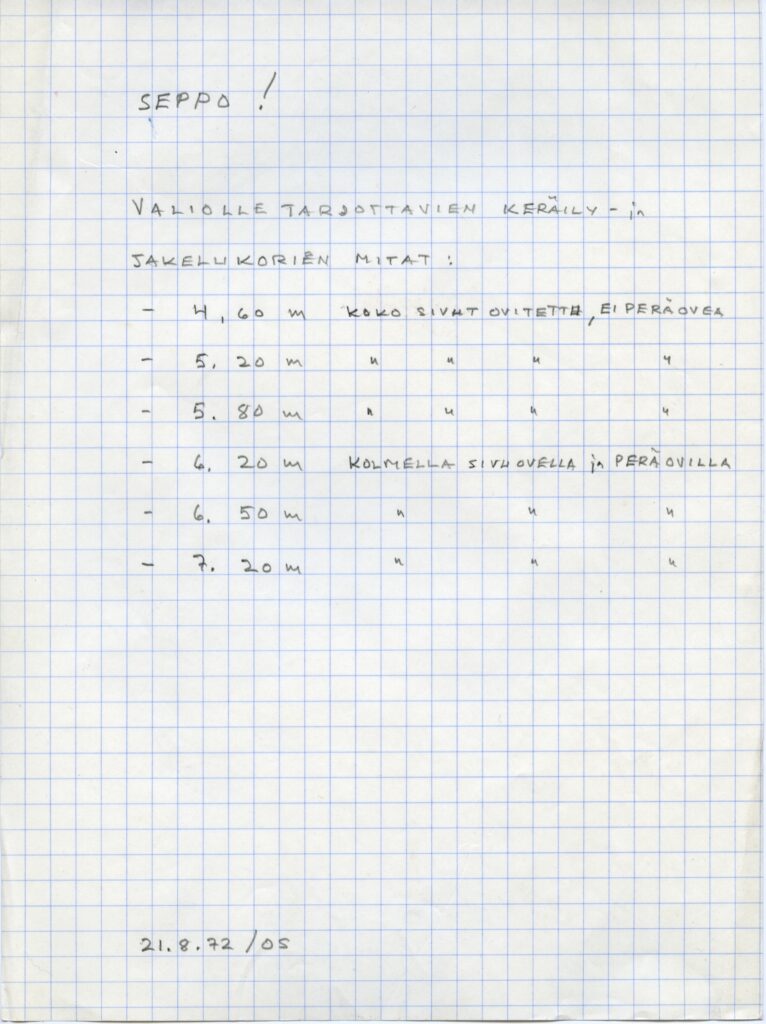 SEPPO !
VALIOLLE TARJOTTAVIEN KERÄILY - ja
JAKELUKORIEN MITAT :
- 4,60 m KOKO SIVUT OVITETTU, EI PERÄOVEA
- 5.20 m " " " "
- 5.80 m " " " "
- 6.20 m KOLMELLA SIVUOVELLA ja PERÄOVILLA
- 6.50 m " " "
- 7.20 m " " "
21.8.72 /OS